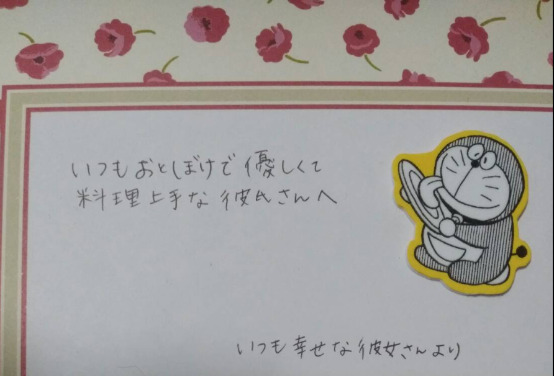 いつもおとぼけで優しくて
料理上手な彼氏さんへ
いつも幸せな彼女さんより